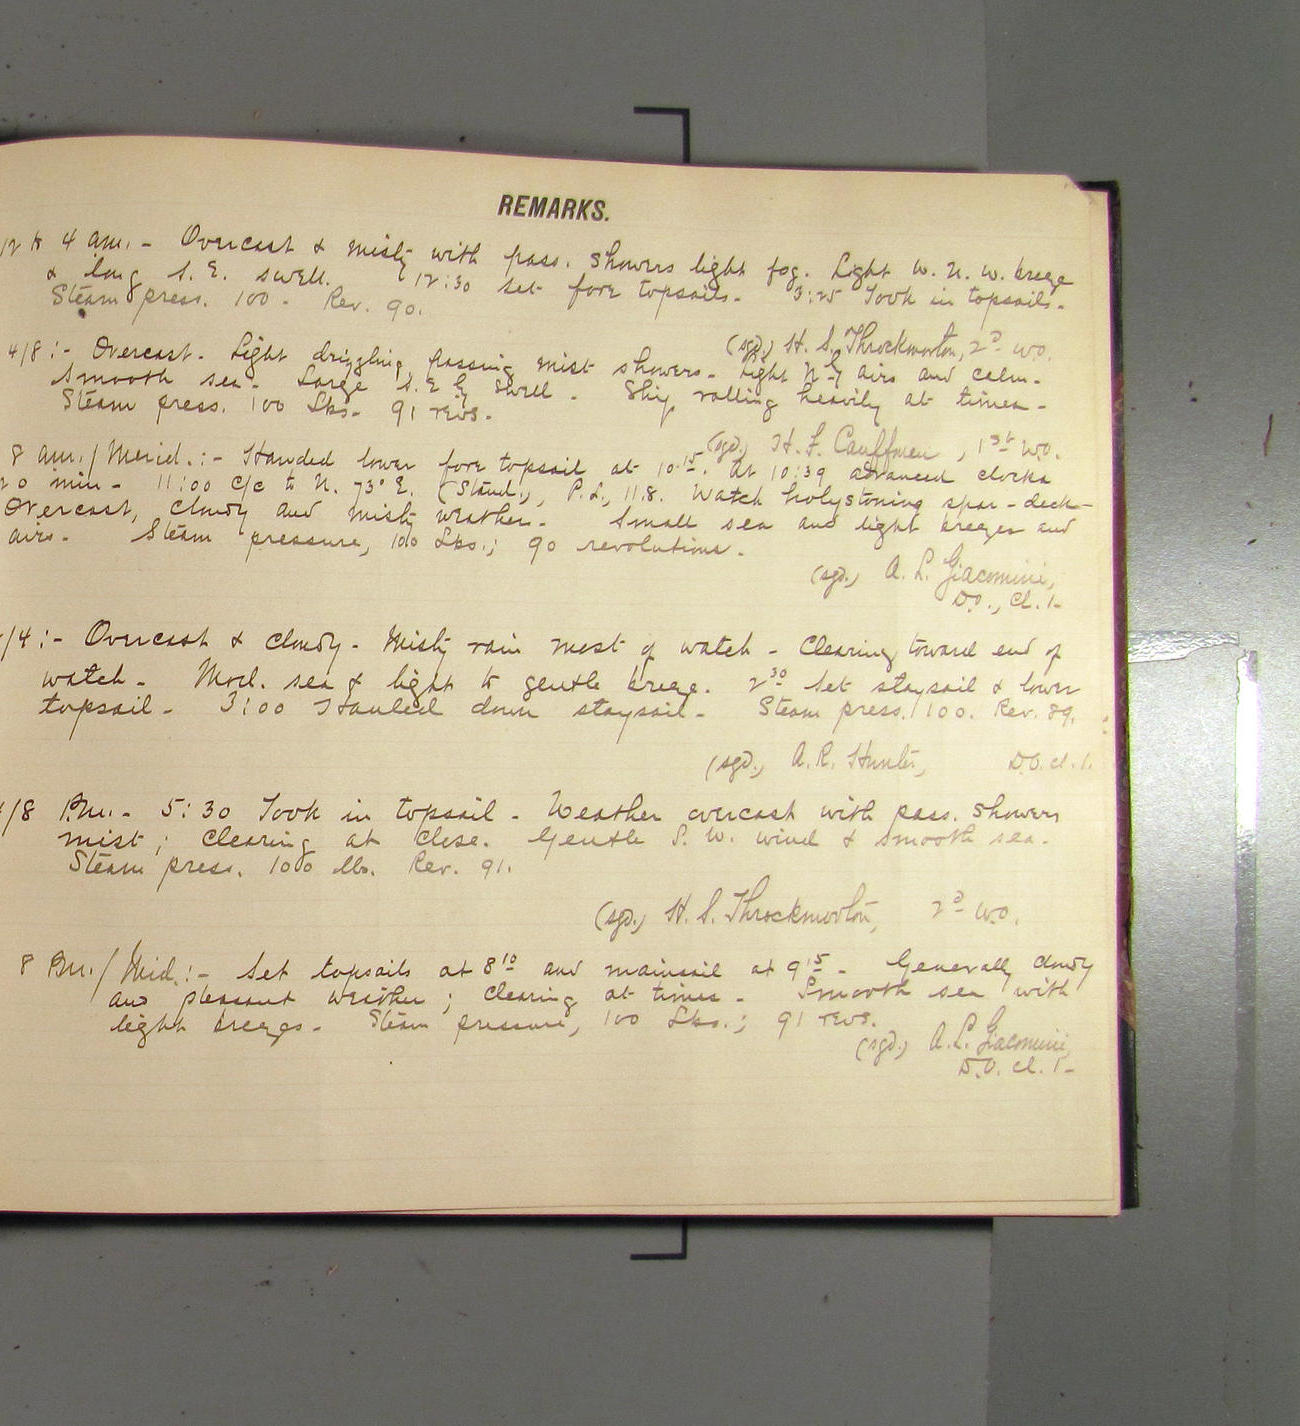 REMARKS.
12 to 4 am. - Overcast & misty with pass. showers light fog. Light W. N. W. breeze
& long S. E. swell. 12:30 set fore topsails. 3:25 Took in topsails.
Steam press. 100 - Rev. 90.
(sgd.) H. S. Throckmorton, 2d W.O.
4/8 :- Overcast - Light drizzling, passing mist showers - Light N'ly airs and calm.
Smooth sea - Large S. E'ly swell - Ship rolling heavily at times -
Steam press. 100 Lbs - 91 revs -
(sgd.) H. F. Cauffman, 1st W.O.
8 am./Merid. :- Handed lower fore topsail at 10.15. At 10:39 advanced clocks
20 min - 11:00 c/c to N. 73° E. (Stand.), P. L., 11.8. Watch holystoning spar-deck -
Overcast, cloudy and misty weather - Small sea and light breezes and
airs - Steam pressure, 100 Lbs.; 90 revolutions.
(sgd.) A. L. Giacomini,
D.O., Cl. 1-
/4 :- Overcast & cloudy - Misty rain most of watch - Clearing toward end of
watch - Mod. sea & light to gentle breeze. 2 30 Set staysail & lower
topsail - 3:00 Hauled down staysail - Steam press. 100. Rev. 89.
(sgd.) A. R. Hunter, D.O. cl. 1.
4/8 P.m. - 5:30 Took in topsail - Weather overcast with pass. showers
mist; clearing at close. Gentle S. W. wind & smooth sea.
Steam press. 100 lbs. Rev. 91.
(sgd.) H. S. Throckmorton, 2d W.O.
8 P.m./Mid. :- Set topsails at 8 10 and mainsail at 9 15 - Generally cloudy
and pleasant weather; clearing at times - Smooth sea with
light breezes - Steam pressure, 100 Lbs.; 91 revs.
(sgd.) A. L. Giacomini,
D.O. cl. 1-